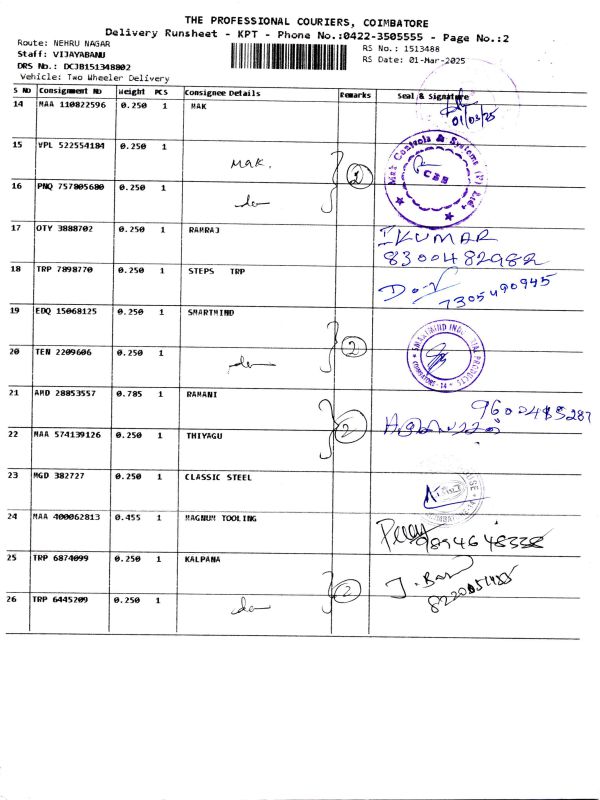 THE PROFESSIONAL COURIERS, COIMBATORE
Delivery Runsheet - KPT - Phone No.:0422-3505555 - Page No.:2
Route: NEHRU NAGAR
Staff: VIJAYABANU
DRS No.: DCJB151348802
Vehicle: Two Wheeler Delivery
RS No.: 1513488
RS Date: 01-Mar-2025
S No Consignment No Weight PCS Consignee Details Remarks Seal & Signature
14 MAA 110822596 0.250 1 MAK
01/03/25
15 VPL 522554184 0.250 1 MAK. 2
Mak Controls & Systems (P) Ltd.
CBE
16 PNQ 757805680 0.250 1 do
17 OTY 3888702 0.250 1 RAMRAJ
IKUMAR
8300482982
18 TRP 7898770 0.250 1 STEPS TRP
7305490945
19 EDQ 15068125 0.250 1 SMARTMIND
20 TEN 2209606 0.250 1 do 2
COIMBATORE - 14
21 AMD 28853557 0.785 1 RAMANI
9600485287
22 MAA 574139126 0.250 1 THIYAGU 2
23 MGD 382727 0.250 1 CLASSIC STEEL
24 MAA 400062813 0.455 1 MAGNUM TOOLING
9894648338
25 TRP 6874099 0.250 1 KALPANA
26 TRP 6445209 0.250 1 do 2